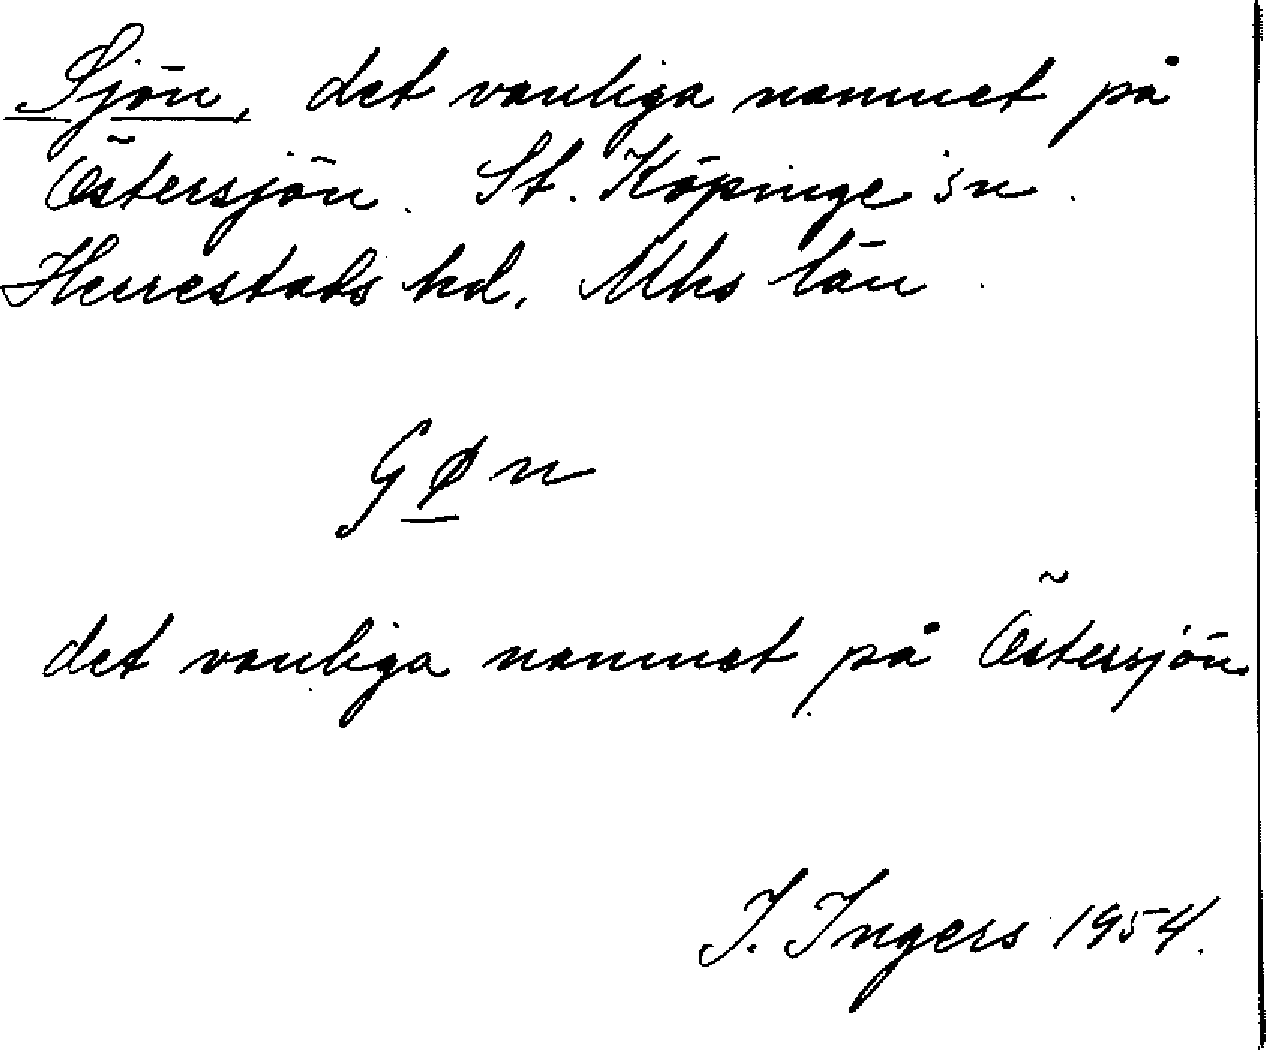 Sjön, det vanliga namnet på
Östersjön. St. Köpinge sn.
Herrestads hd, Mhs län.
det vanliga namnet på Östersjön
I. Ingers 1954.